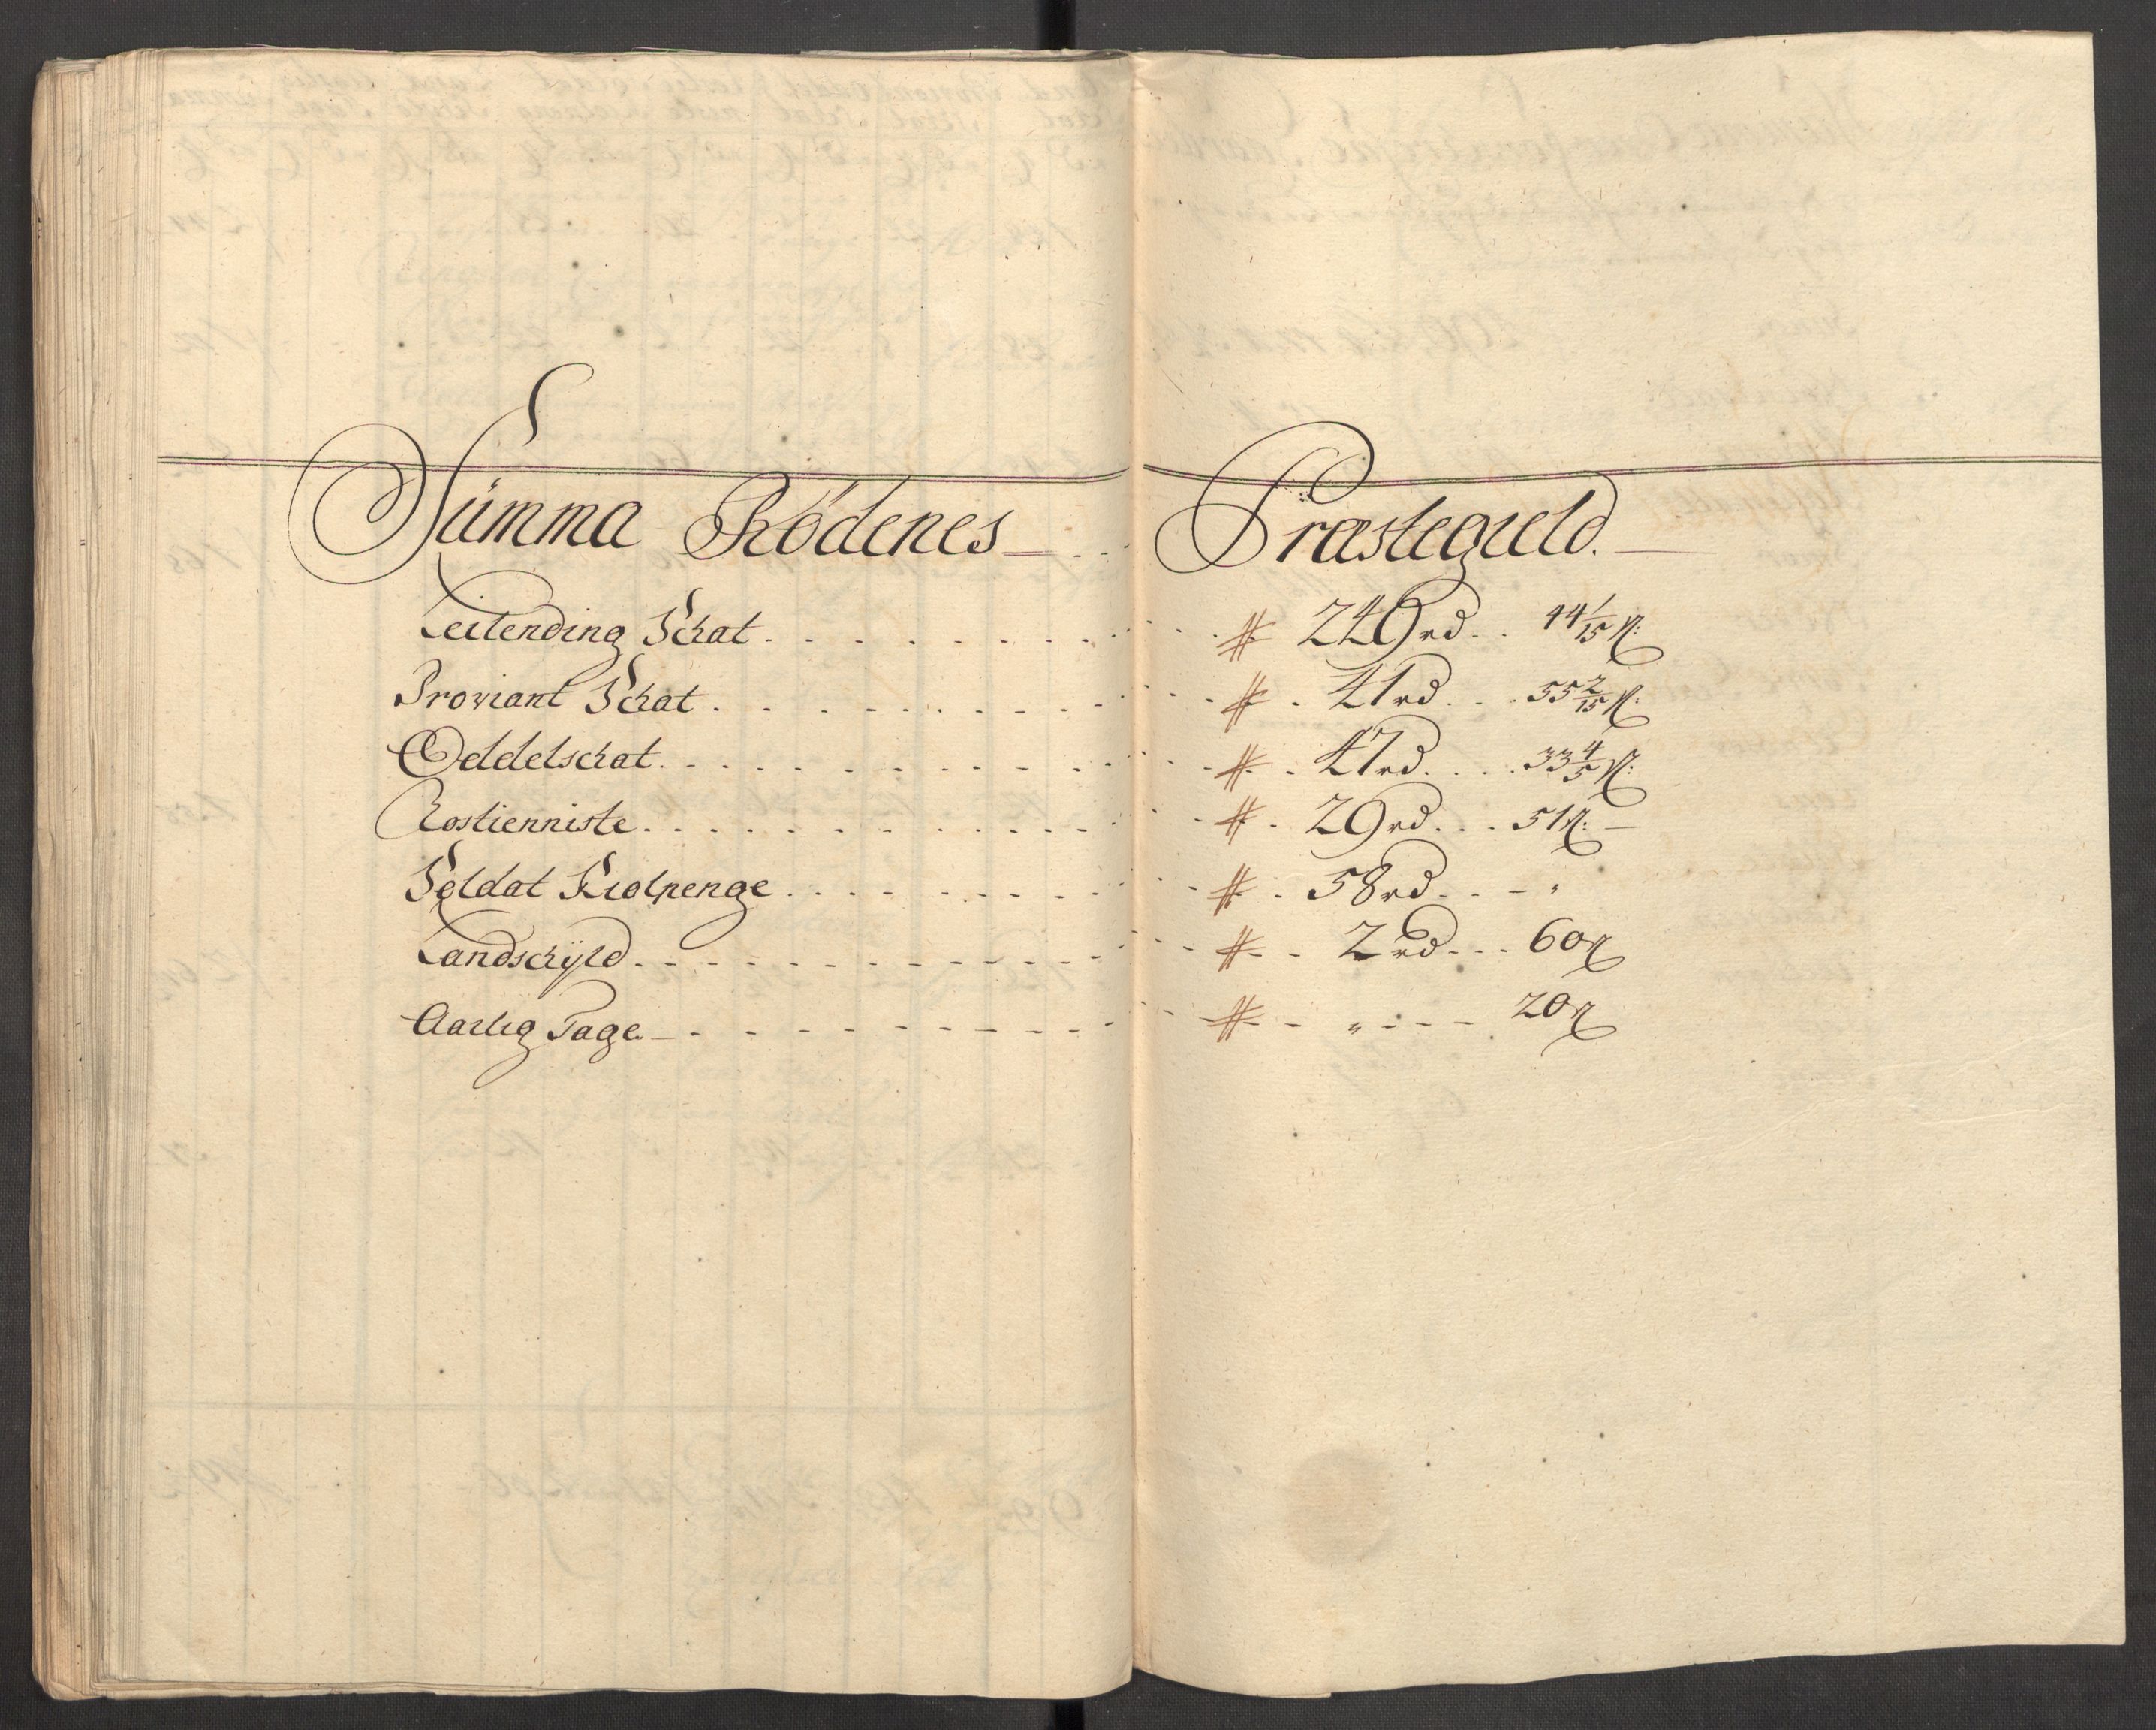 Summa Rödenes Præstegield.
Leilending Schat # 249 rd 44 1/15 ß:
Proviant Schat # 41 rd 55 2/15 ß:
Oddelschat # 47 rd 33 4/5 ß:
Rostienniste # 29 rd 51 ß:
Soldat Holpenge # 58 rd "
Landschÿld # 2 rd 60 ß
Aarlig Tage # " 20 ß